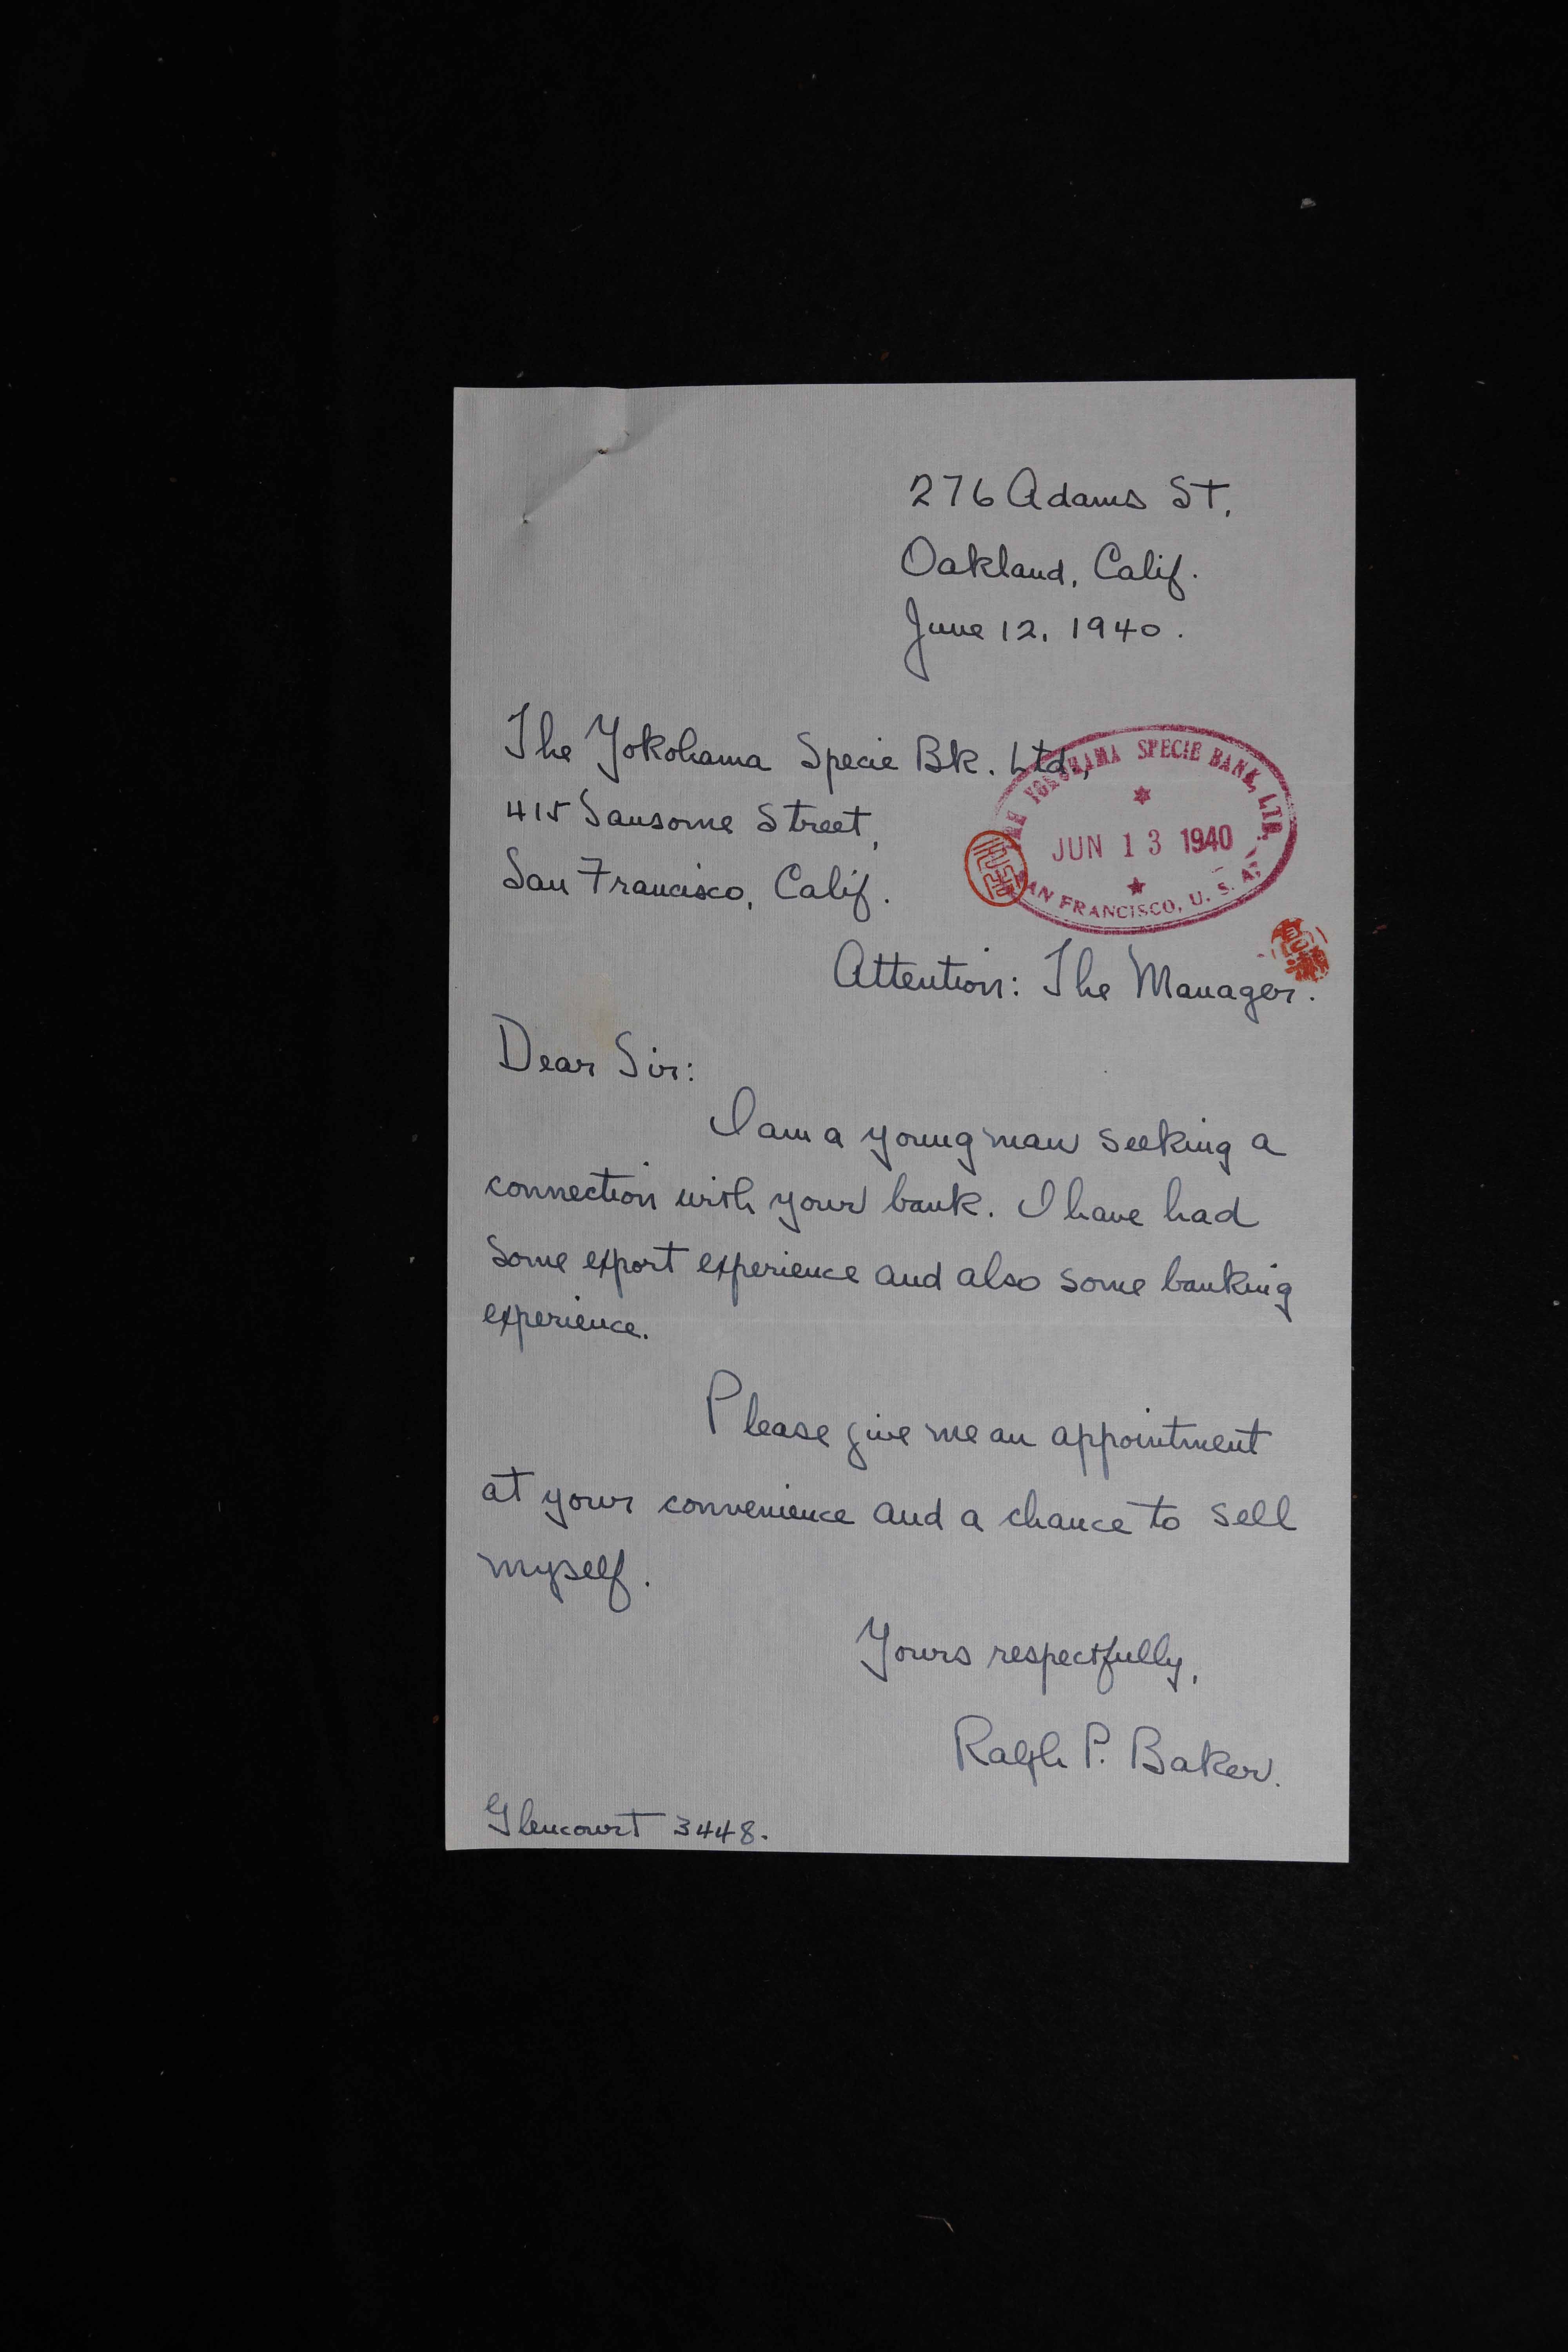 276 Adams St,
Oakland, Calif.
June 12, 1940.
The Yokohama Specie Bk. Ltd,
415 Sansome Street,
San Francisco, Calif.
THE YOKOHAMA SPECIE BANK, LTD.
JUN 13 1940
SAN FRANCISCO, U. S. A.
Attention: The Manager.
Dear Sir:
I am a young man seeking a
connection with your bank. I have had
some export experience and also some banking
experience.
Please give me an appointment
at your convenience and a chance to sell
myself.
Yours respectfully,
Ralph P. Baker.
Glencourt 3448.